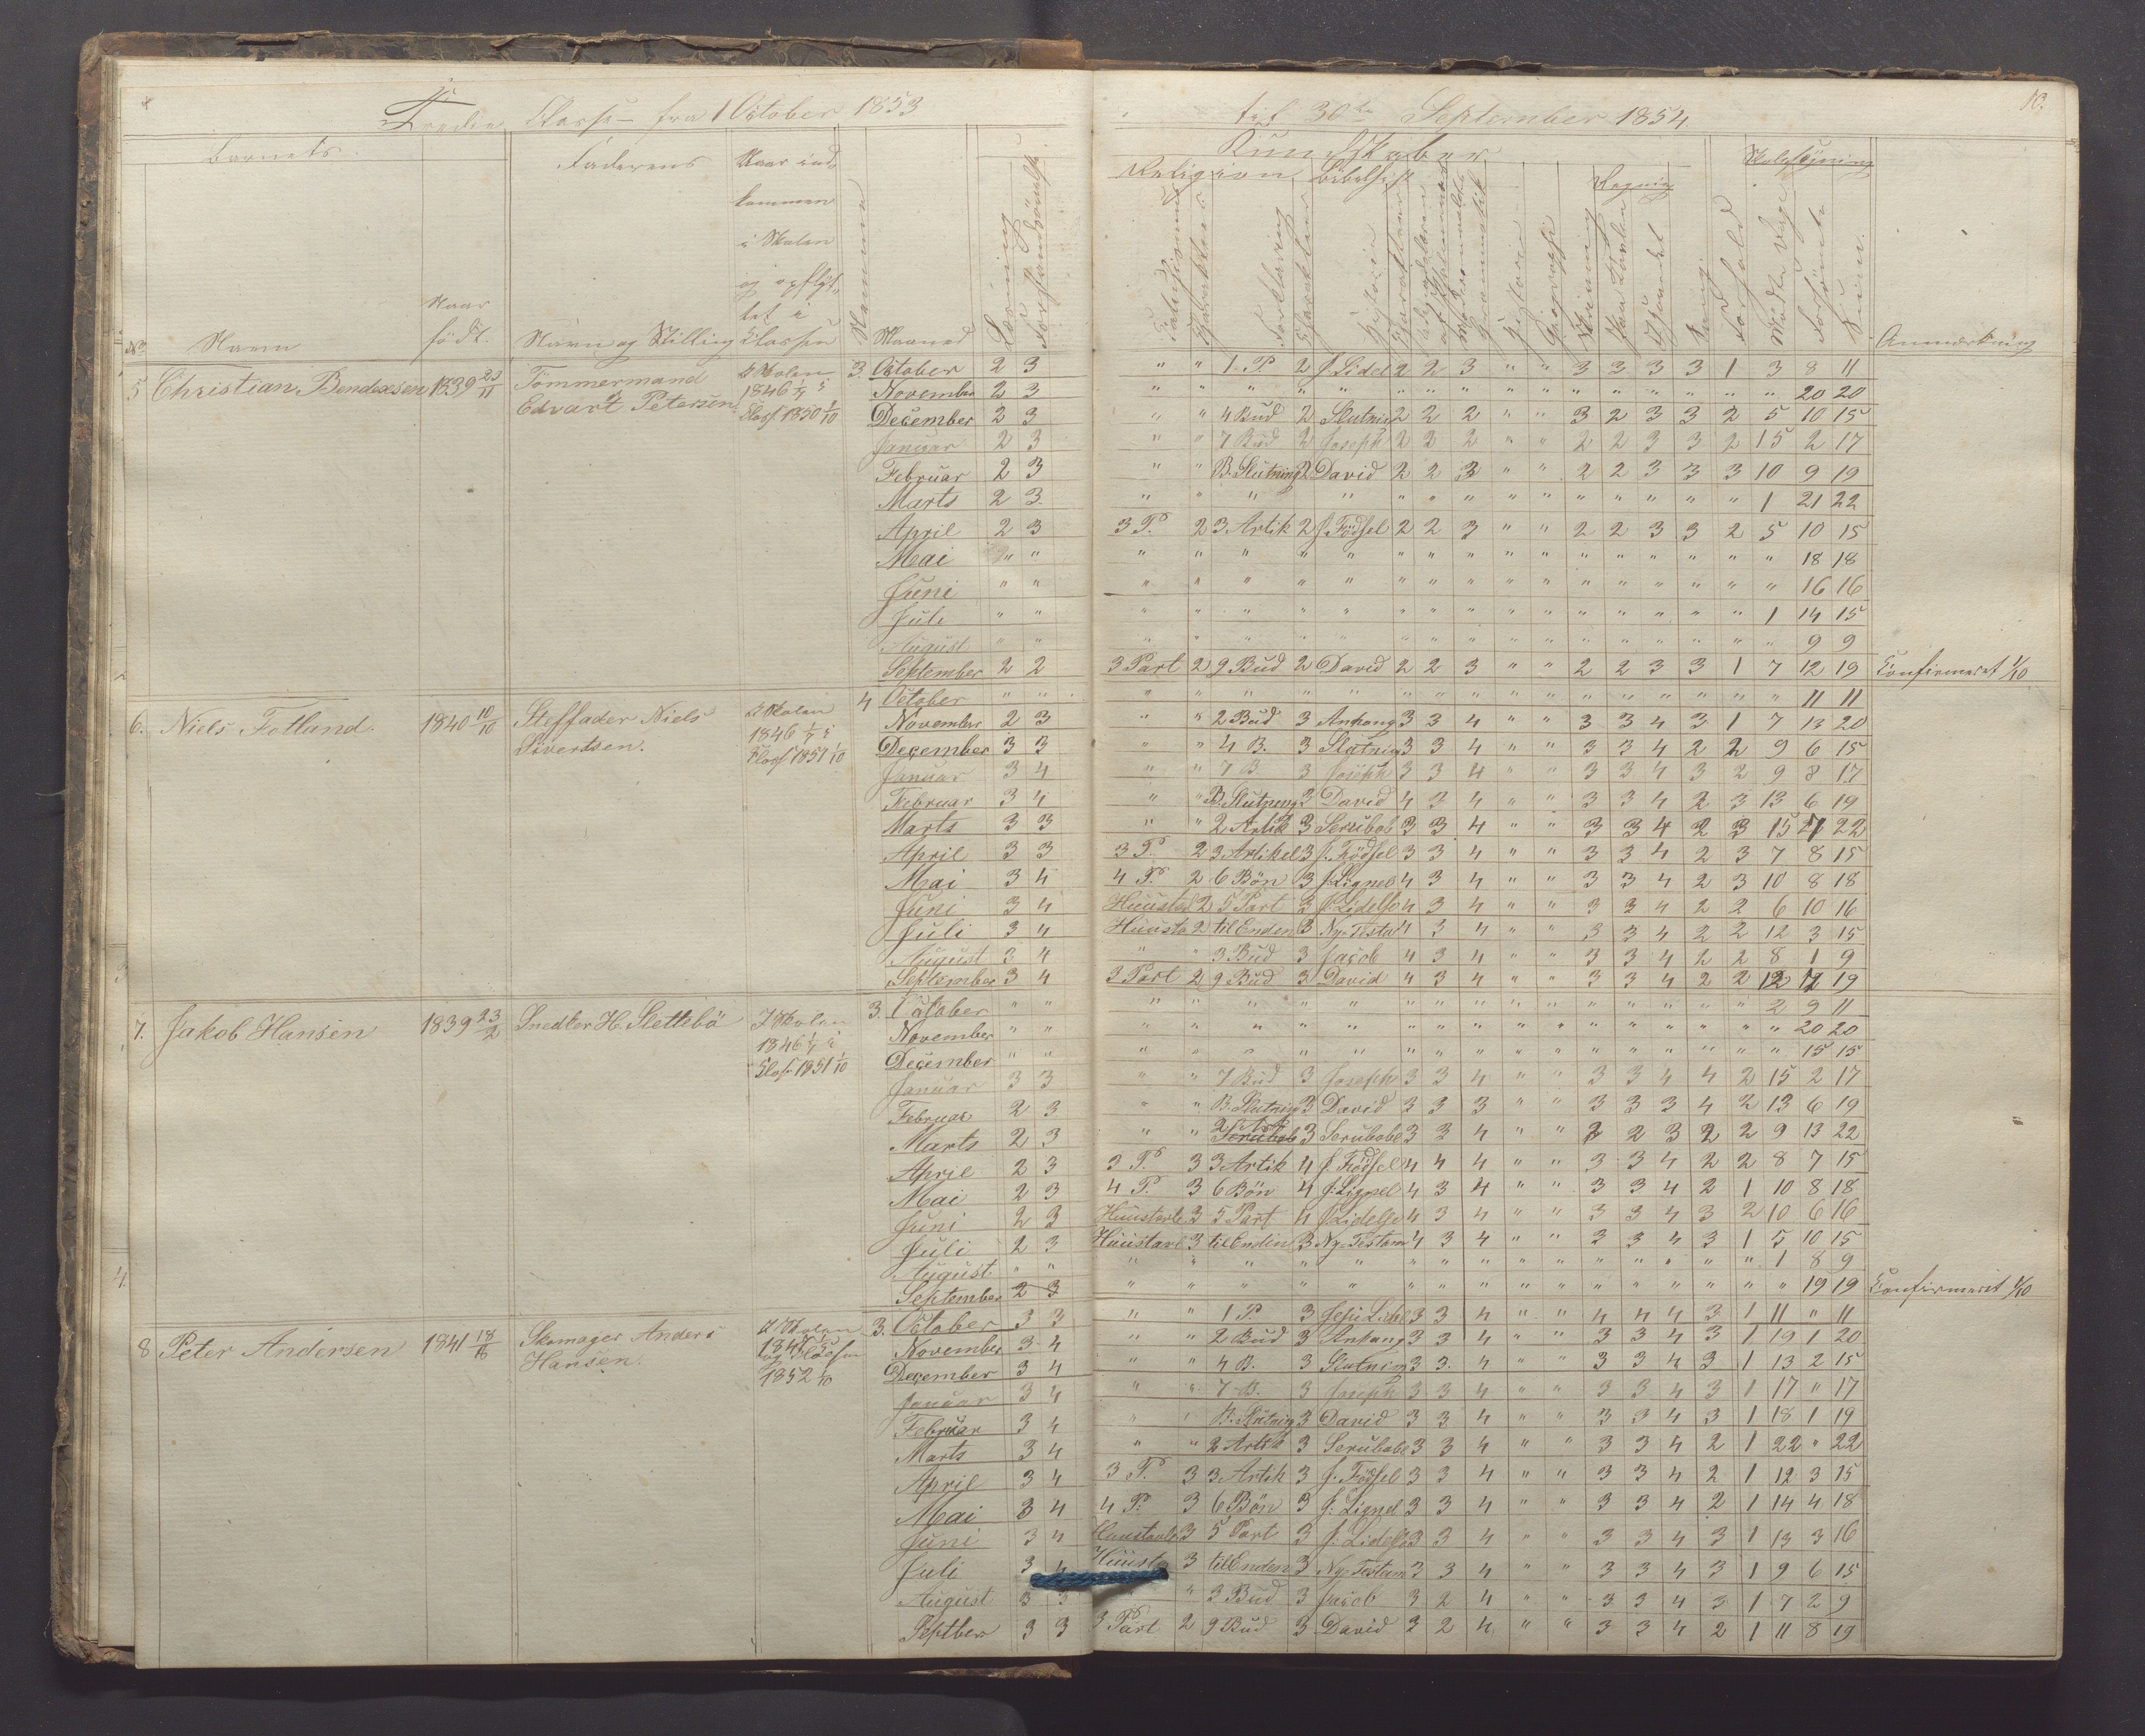 Tredie Classe fra 1 October 1853
til 30te September 1854
10.
Barnets
Faderens
Naar ind-
kommen
i Skolen
og opflyt-
tet i
Classen
Kundskaber
Religion Bibelhist
Regning
Skolesøgning
No Navn
Naar
født.
Navn og Stilling
Nummer
Maaned
Læsning
Forstandsøvelse
Forklaring
Historie
Geographie
Forhold
Mødte Dage
Forsömte
Sum.
Anmærkning
5 Christian Bendexsen 1839 23/11 Tömmermand I Skolen 3. October 2 3 " " 1 P 2 J. Lidel 2 2 3 " " 3 3 3 3 1 3 8 11
Edvart Petersen 1846 1/7 i November 2 3 " " " " " " " " " " " " " " " " 20 20
Class. 1850 1/10 December 2 3 " " 4 Bud 2 Slutning 2 2 2 " " 3 2 3 3 2 5 10 15
Januar 2 3 " " 7 Bud 2 Joseph 2 2 2 " " 2 2 3 3 2 15 2 17
Februar 2 3 " " B. Slutning 2 David 2 2 3 " " 2 2 3 3 3 10 9 19
Marts 2 3 " " " " " " " " " " " " " " 1 21 22
April 2 3 3 P. 2 3 Artik 2 J. Födsel 2 2 3 " " 2 2 3 3 2 5 10 15
Mai " " " " " " " " " " " " " " " " " " " 18 18
Juni " " " " " " " " " " " " " " " " " " " 16 16
Juli " " " " " " " " " " " " " " " " " " 1 14 15
August " " " " " " " " " " " " " " " " " " " 9 9
September 2 2 3 Part 2 9 Bud 2 David 2 2 3 " " 2 2 3 3 1 7 12 19 Confirmeret 1/10
6. Niels Fotland. 1840 10/10 Steffader Niels I Skolen 4 October " " " " " " " " " " " " " " " " " " " 11 11
Sivertsen. 1846 1/7 i November 2 3 " " 2 Bud 3 Anhang 3 3 4 " " 3 3 4 3 1 7 13 20
Class. 1851 1/10 December 3 3 " " 4 B. 3 Slutning 3 3 4 " " 3 3 4 2 2 9 6 15
Januar 3 4 " " 7 B 3 Joseph 3 3 4 " " 3 3 4 3 2 9 8 17
Februar 3 4 " " B. Slutning 3 David 4 3 4 " " 3 3 4 2 3 13 6 19
Marts 3 3 " " 2 Artik 3 Serubab 3 3 4 " " 3 3 4 2 3 15 7 22
April 3 3 3 P. 2 3 Artikel 3 J. Födsel 3 3 4 " " 3 3 4 2 3 7 8 15
Mai 3 4 4 P. 2 6 Bön 3 J. Lignel 4 3 4 " " 3 3 4 2 3 10 8 18
Juni 3 4 Huustal 2 5 Part 3 J. Lidelse 4 3 4 " " 3 3 4 2 2 6 10 16
Juli 3 4 Huusta 2 til Enden 3 Ny-Testa 4 3 4 " " 3 3 4 2 2 12 3 15
August 3 4 " " 3 Bud 3 Jacob 4 3 4 " " 3 3 4 2 2 8 1 9
September 3 4 3 Part 2 9 Bud 3 David 4 3 4 " " 3 3 4 2 2 12 7 19
7. Jakob Hansen 1839 23/2 Snedker H. Slettebö I Skolen 3. October " " " " " " " " " " " " " " " " " " 2 9 11
1846 1/7 i November " " " " " " " " " " " " " " " " " " " 20 20
Class. 1851 1/10 December " " " " " " " " " " " " " " " " " " " 15 15
Januar 3 3 " " 7 Bud 3 Joseph 3 3 4 " " 3 3 4 4 2 15 2 17
Februar 2 3 " " B. Slutning 3 David 3 3 3 " " 3 3 3 4 2 13 6 19
Marts 2 3 " " 2 Art Serubab 3 Serubabel 3 3 4 " " 2 2 3 2 2 9 13 22
April 2 3 3 P. 3 3 Artik 4 J. Födsel 4 4 4 " " 3 3 4 2 2 8 7 15
Mai 2 3 4 P. 3 6 Bön 4 J. Lignel 4 3 4 " " 3 3 4 2 1 10 8 18
Juni 2 3 Huustavle 3 5 Part 4 J. Lidelse 4 3 4 " " 3 3 4 3 2 10 6 16
Juli 2 3 Huustavl 3 til Enden 3 Ny-Testam 4 3 4 " " 3 3 4 3 1 5 10 15
August. " " " " " " " " " " " " " " " " " " 1 8 9
September 2 3 " " " " " " " " " " " " " " " " " 19 19 Confirmeret 1/10
8 Peter Andersen 1841 18/16 Skomager Anders I Skolen 3. October 3 3 " " 1 P. 3 Jesu Lidel 3 3 4 " " 4 4 4 3 1 11 " 11
Hansen. November 3 4 " " 2 Bud 3 Anhang 3 3 4 " " 3 3 4 3 1 19 1 20
1852 1/10 December 3 4 " " 4 B. 3 Slutning 3 3 4 " " 3 3 4 3 1 13 2 15
Januar 3 4 " " 7 B. 3 Joseph 3 3 4 " " 3 3 4 3 1 17 " 17
Februar 3 4 " " B. Slutning 3 David 3 3 4 " " 3 3 4 3 1 18 1 19
Marts 3 4 " " 2 Artik 3 Serubabel 3 3 4 " " 3 3 4 2 1 22 " 22
April 3 4 3 P. 3 3 Artik 3 J. Födsel 3 3 4 " " 3 3 4 2 1 12 3 15
Mai 3 4 4 P. 3 6 Bön 3 J. Lignel 3 3 4 " " 3 3 4 2 1 14 4 18
Juni 3 4 Huustavle 3 5 Part 3 J. Lidelse 3 3 4 " " 3 3 4 3 1 13 3 16
Juli 3 4 Huusta 3 til Enden 3 Ny-Testam 3 3 4 " " 3 3 4 3 1 9 6 15
August 3 3 " 3 Bud 3 Jacob 3 2 4 " " 3 3 4 3 1 7 2 9
Septber 3 3 3 Part 2 9 Bud 3 David 3 2 4 " " 3 3 4 2 1 11 8 19